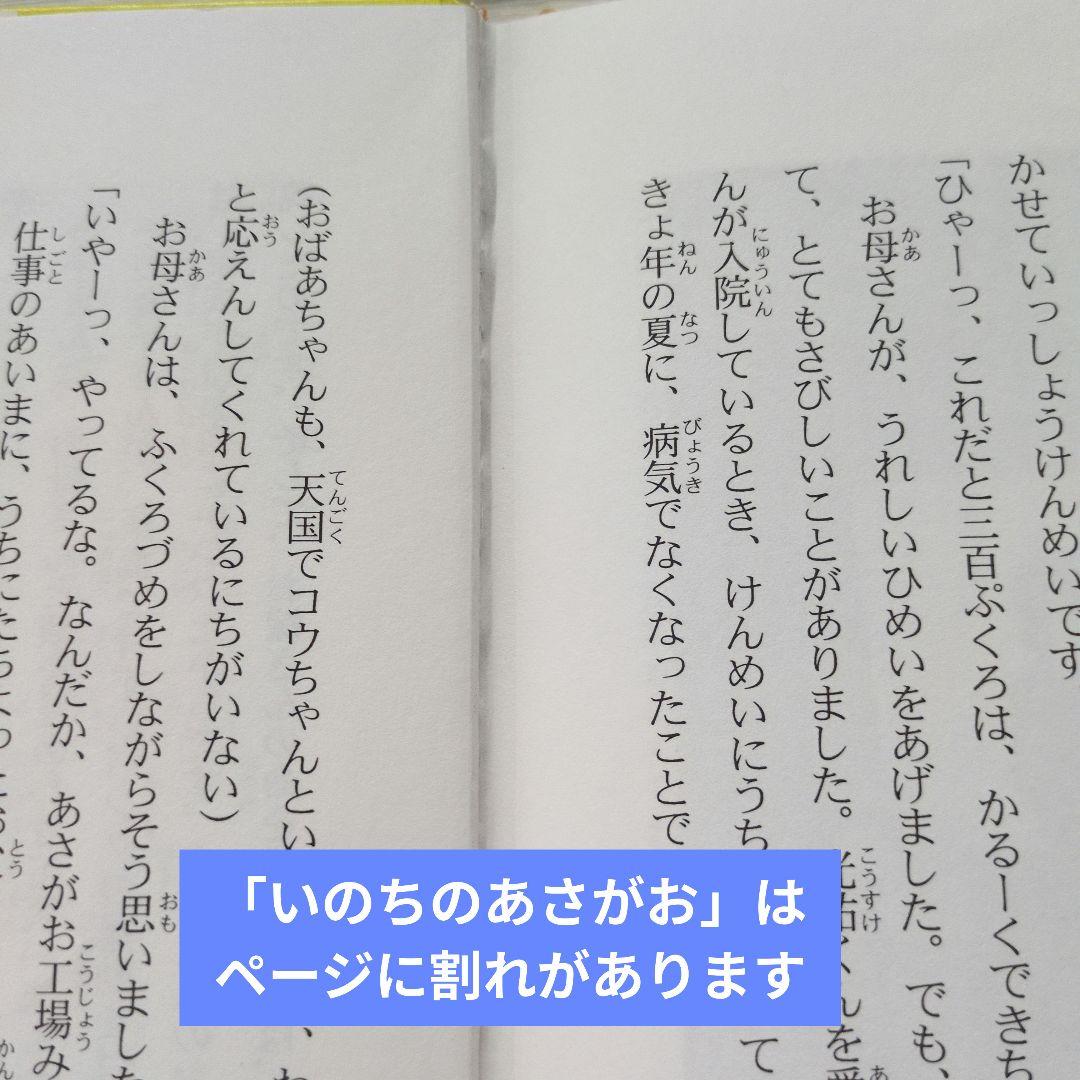 かせていっしょうけんめいです
「ひゃーっ、これだと三百ぷくろは、かるーくできち
お母さんが、うれしいひめいをあげました。でも、
て、とてもさびしいことがありました。
んが入院しているとき、けんめいにうち
きょ年の夏に、病気でなくなったことで
(おばあちゃんも、天国でコウちゃんとい
と応えんしてくれているにちがいない)
お母さんは、ふくろづめをしながらそう思いました
「いやーっ、やってるな。なんだか、あさがお工場み
仕事のあいまに、うちにたちよったお
「いのちのあさがお」は
ページに割れがあります